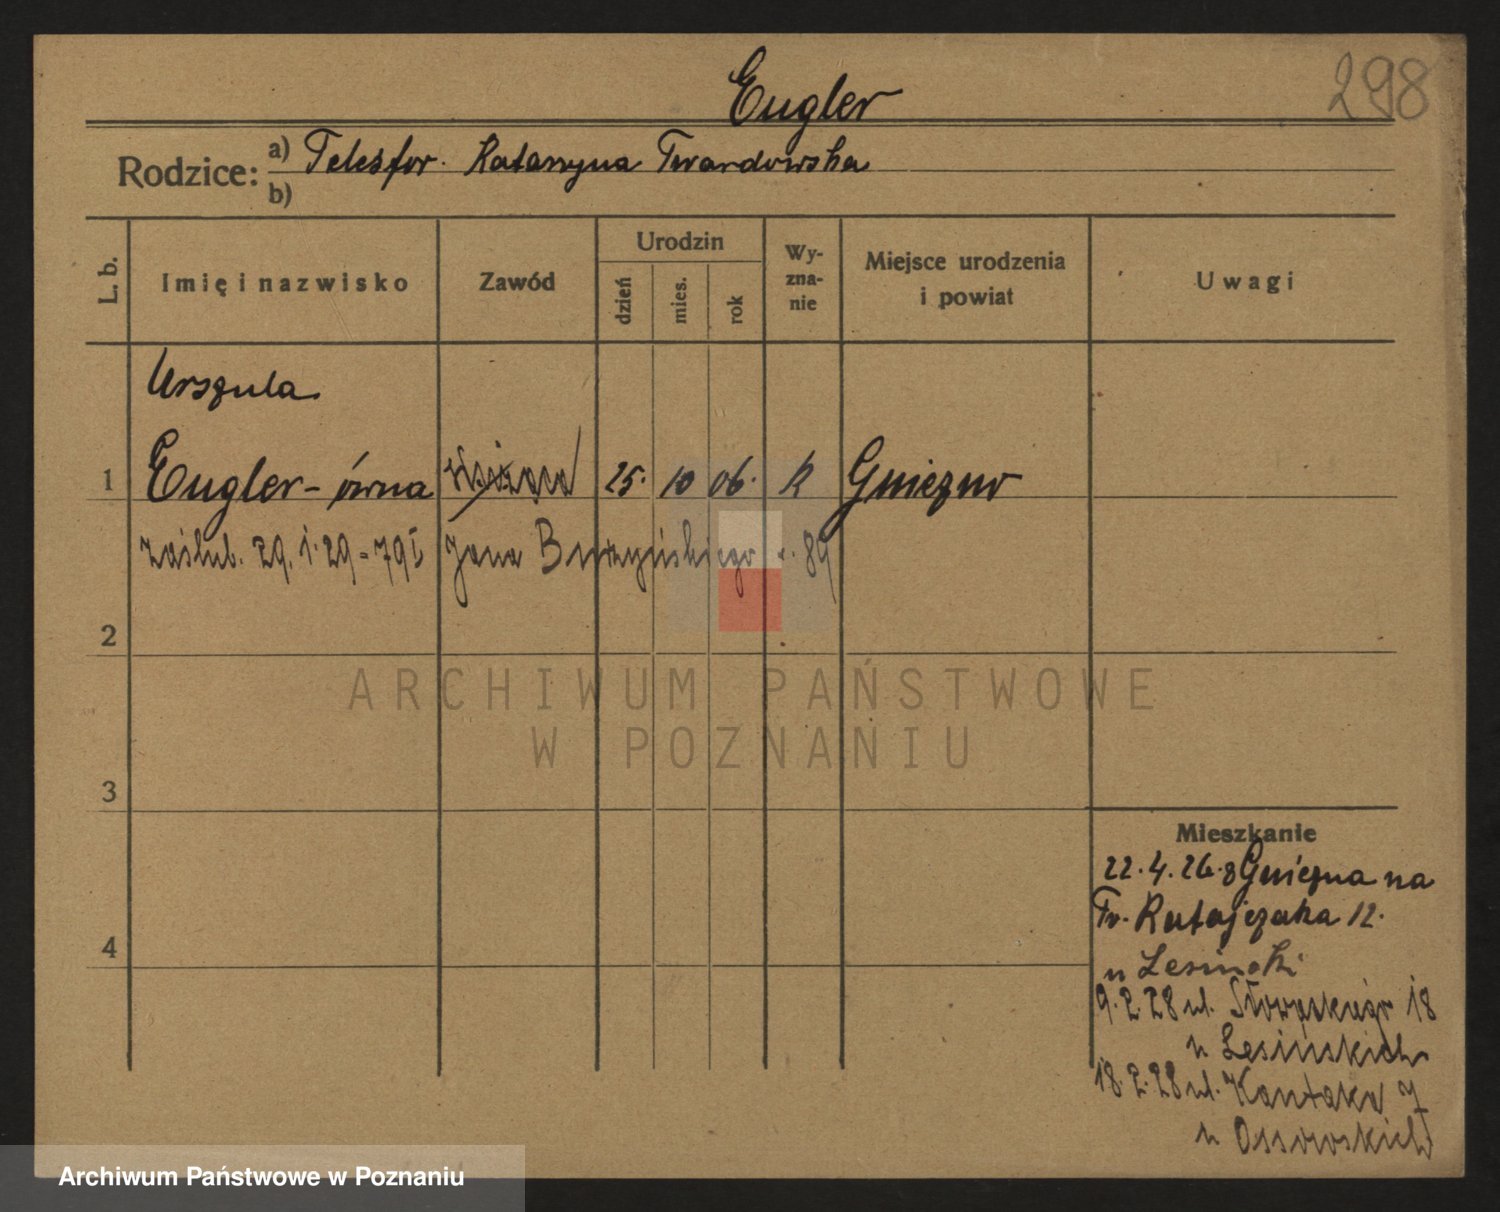 Engler
298
Rodzice: a) Telesfor. Katarzyna Twardowska
b)
L. b. Imię i nazwisko Zawód Urodzin dzień mies. rok Wy-zna-nie Miejsce urodzenia i powiat Uwagi
Urszula
1 Engler-ówna 25. 10 06. K Gniezno
zaślub. 29. 1. 29 - 79 I Jana Burzyńskiego r. 89
2
3
4
Mieszkanie
22. 4. 26. z Gniezna na
Fr. Ratajczaka 12.
u Lesinski
9. 2. 28 ul. 18
u Lesinskich
18. 2. 28 ul. Kantaka 7
u Ossowskich
ARCHIWUM PAŃSTWOWE
W POZNANIU
Archiwum Państwowe w Poznaniu